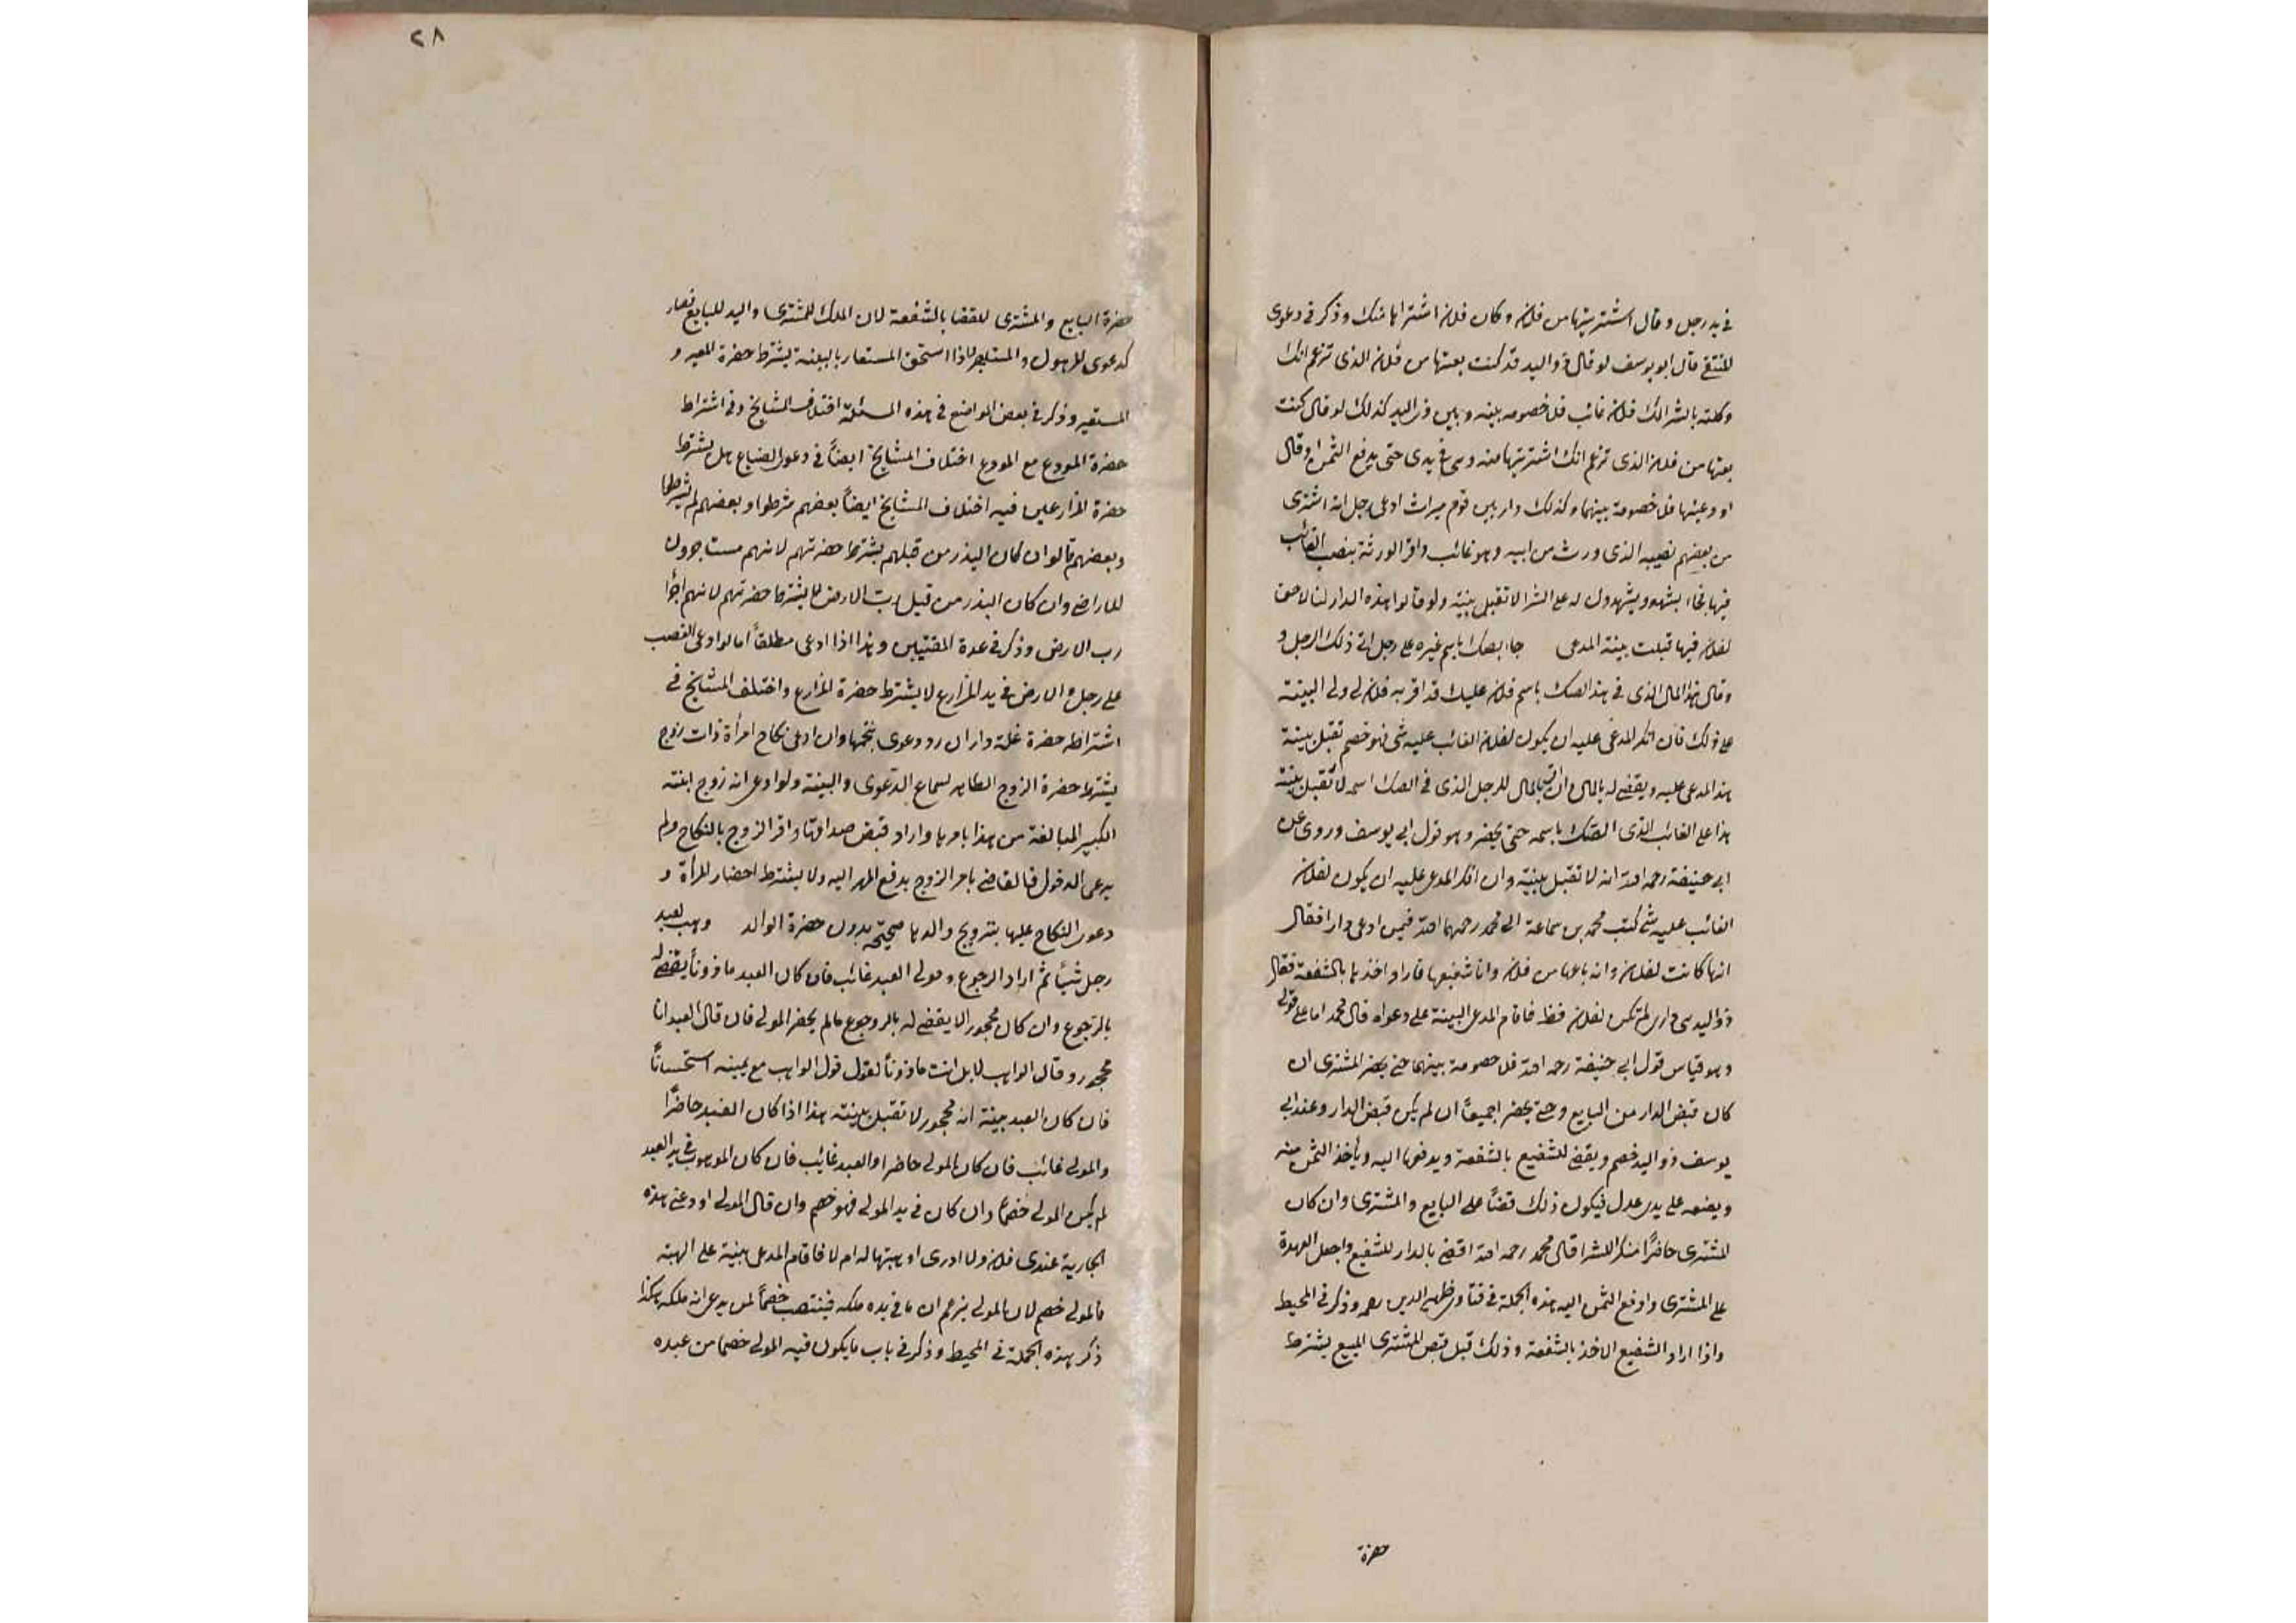 في يد رجل وقال اشتريتها من فلان وكان فلان اشتراها منك وذكر في دعوى
المنتقى قال ابو يوسف لو قال ذو اليد قد كنت بعتها من فلان الذى تزعم انك
وكلته بالشرا لك فلان غائب فلا خصومه بينه وبين ذى اليد كذلك لو قال كنت
بعتها من فلان الذى تزعم انك اشتريتها منه وهى في يدى حتى يدفع الثمن او قال
اودعنيها فلا خصومة بينهما وكذلك دار بين قوم ميراث ادعى رجل انه اشترى
من بعضهم نصيبه الذى ورث من ابيه وهو غائب واقر الورثة بنصيب الغائب
فيها فجاء بشهود يشهدون له على الشرا لا تقبل بينته ولو قالوا هذه الدار لنا لا حق
لفلان فيها قبلت بينة المدعى جاء بصك باسم غيره على رجل الى ذلك الرجل و
وقال هذا المال الذى في هذا الصك باسم فلان عليك قد اقر به فلان لى ولى البينة
على ذلك فان انكر المدعى عليه ان يكون لفلان الغائب عليه شى فهو خصم تقبل بينة
هذا المدعى عليه ويقضى له بالمال وان اقر بالمال للرجل الذى في الصك اسمه لا تقبل بينة
هذا على الغائب الذى الصك باسمه حتى يحضر وهو قول ابى يوسف وروى عن
ابى حنيفة رحمه الله انه لا تقبل بينته وان انكر المدعى عليه ان يكون لفلان
الغائب عليه شى كتب محمد بن سماعة الى محمد رحمهما الله فيمن ادعى دارا فقال
انها كانت لفلان وانه باعها من فلان وانا شفيعها فاراد اخذها بالشفعة فقال
ذو اليد هى دارى لم تكن لفلان قط فاقام المدعى البينة على دعواه قال محمد اما على قولى
وهو قياس قول ابى حنيفة رحمه الله فلا خصومة بينهما حتى يحضر المشترى ان
كان قبض الدار من البايع وحتى يحضر اجميعًا ان لم يكن قبض الدار وعند ابى
يوسف ذو اليد خصم ويقضى للشفيع بالشفعة ويدفعها اليه ويأخذ الثمن منه
ويضعه على يدى عدل فيكون ذلك قضًا على البايع والمشترى وان كان
المشترى حاضرًا منكرا للشرا قال محمد رحمه الله اقضى بالدار للشفيع واجعل العهدة
على المشترى وادفع الثمن اليه هذه الجملة في فتاوى ظهير الدين رحمه وذكر في المحيط
واذا اراد الشفيع الاخذ بالشفعة وذلك قبل قبض المشترى المبيع يشترط
حضرة
٢٨
حضرة البايع والمشترى للقضا بالشفعة لان الملك للمشترى واليد للبايع فصار
كدعوى المرهون والمستاجر اذا استحق المستعار بالبينة يشترط حضرة المعير و
المستعير وذكر في بعض المواضع في هذه المسئلة اختلاف المشايخ وفي اشتراط
حضرة المودع مع المودع اختلاف المشايخ ايضًا في دعوى الضياع هل يشترط
حضرة المزارعين فيه اختلاف المشايخ ايضًا بعضهم شرطوا وبعضهم لم يشرطها
وبعضهم قالوا ان كان البذر من قبلهم يشترط حضرتهم لانهم مستاجرون
للاراضى وان كان البذر من قبل رب الارض لا يشترط حضرتهم لانهم اجرا
رب الارض وذكر في عدة المفتيين وهذا اذا ادعى مطلقًا اما لو ادعى الغصب
على رجل والارض في يد المزارع لا يشترط حضرة المزارع واختلف المشايخ في
اشتراط حضرة غلة داران رو دعوى وان ادعى نكاح امرأة ذات زوج
يشترط حضرة الزوج الظاهر لسماع الدعوى والبينة ولو ادعى انه زوج ابنته
الكبير المبالغة من هذا بامرها واراد قبض صداقها واقر الزوج بالنكاح ولم
يدعى الدخول فالقاضى يامر الزوج بدفع المهر اليه ولا يشترط احضار المرأة و
دعوى النكاح عليها بتزويج والدها صحيحة بدون حضرة الوالد وهب لعبد
رجل شيًا ثم اراد الرجوع ومولى العبد غائب فان كان العبد ماذونًا يقضى له
بالرجوع وان كان محجورا لا يقضى له بالرجوع مالم يحضر المولى فان قال العبد انا
محجور وقال الواهب لا بل انت ماذونًا لقول قول الواهب مع يمينه استحسانًا
فان كان العبد بينة انه محجور لا تقبل بينته هذا اذا كان العبد حاضرًا
والمولى غائب فان كان المولى حاضرا والعبد غائب فان كان الموهوب في يد العبد
لم يكن المولى خصمًا وان كان في يد المولى فهو خصم وان قال المولى اودعنى هذه
الجارية عندى فلان ولا ادرى اوهبتها له ام لا فاقام المدعى بينة على الهبة
فالمولى خصم لان المولى يزعم ان ما في يده ملكه فينتصب خصمًا لمن يدعى انه ملكه هكذا
ذكر هذه الجملة في المحيط وذكر في باب ما يكون فيه المولى خصما من عبده